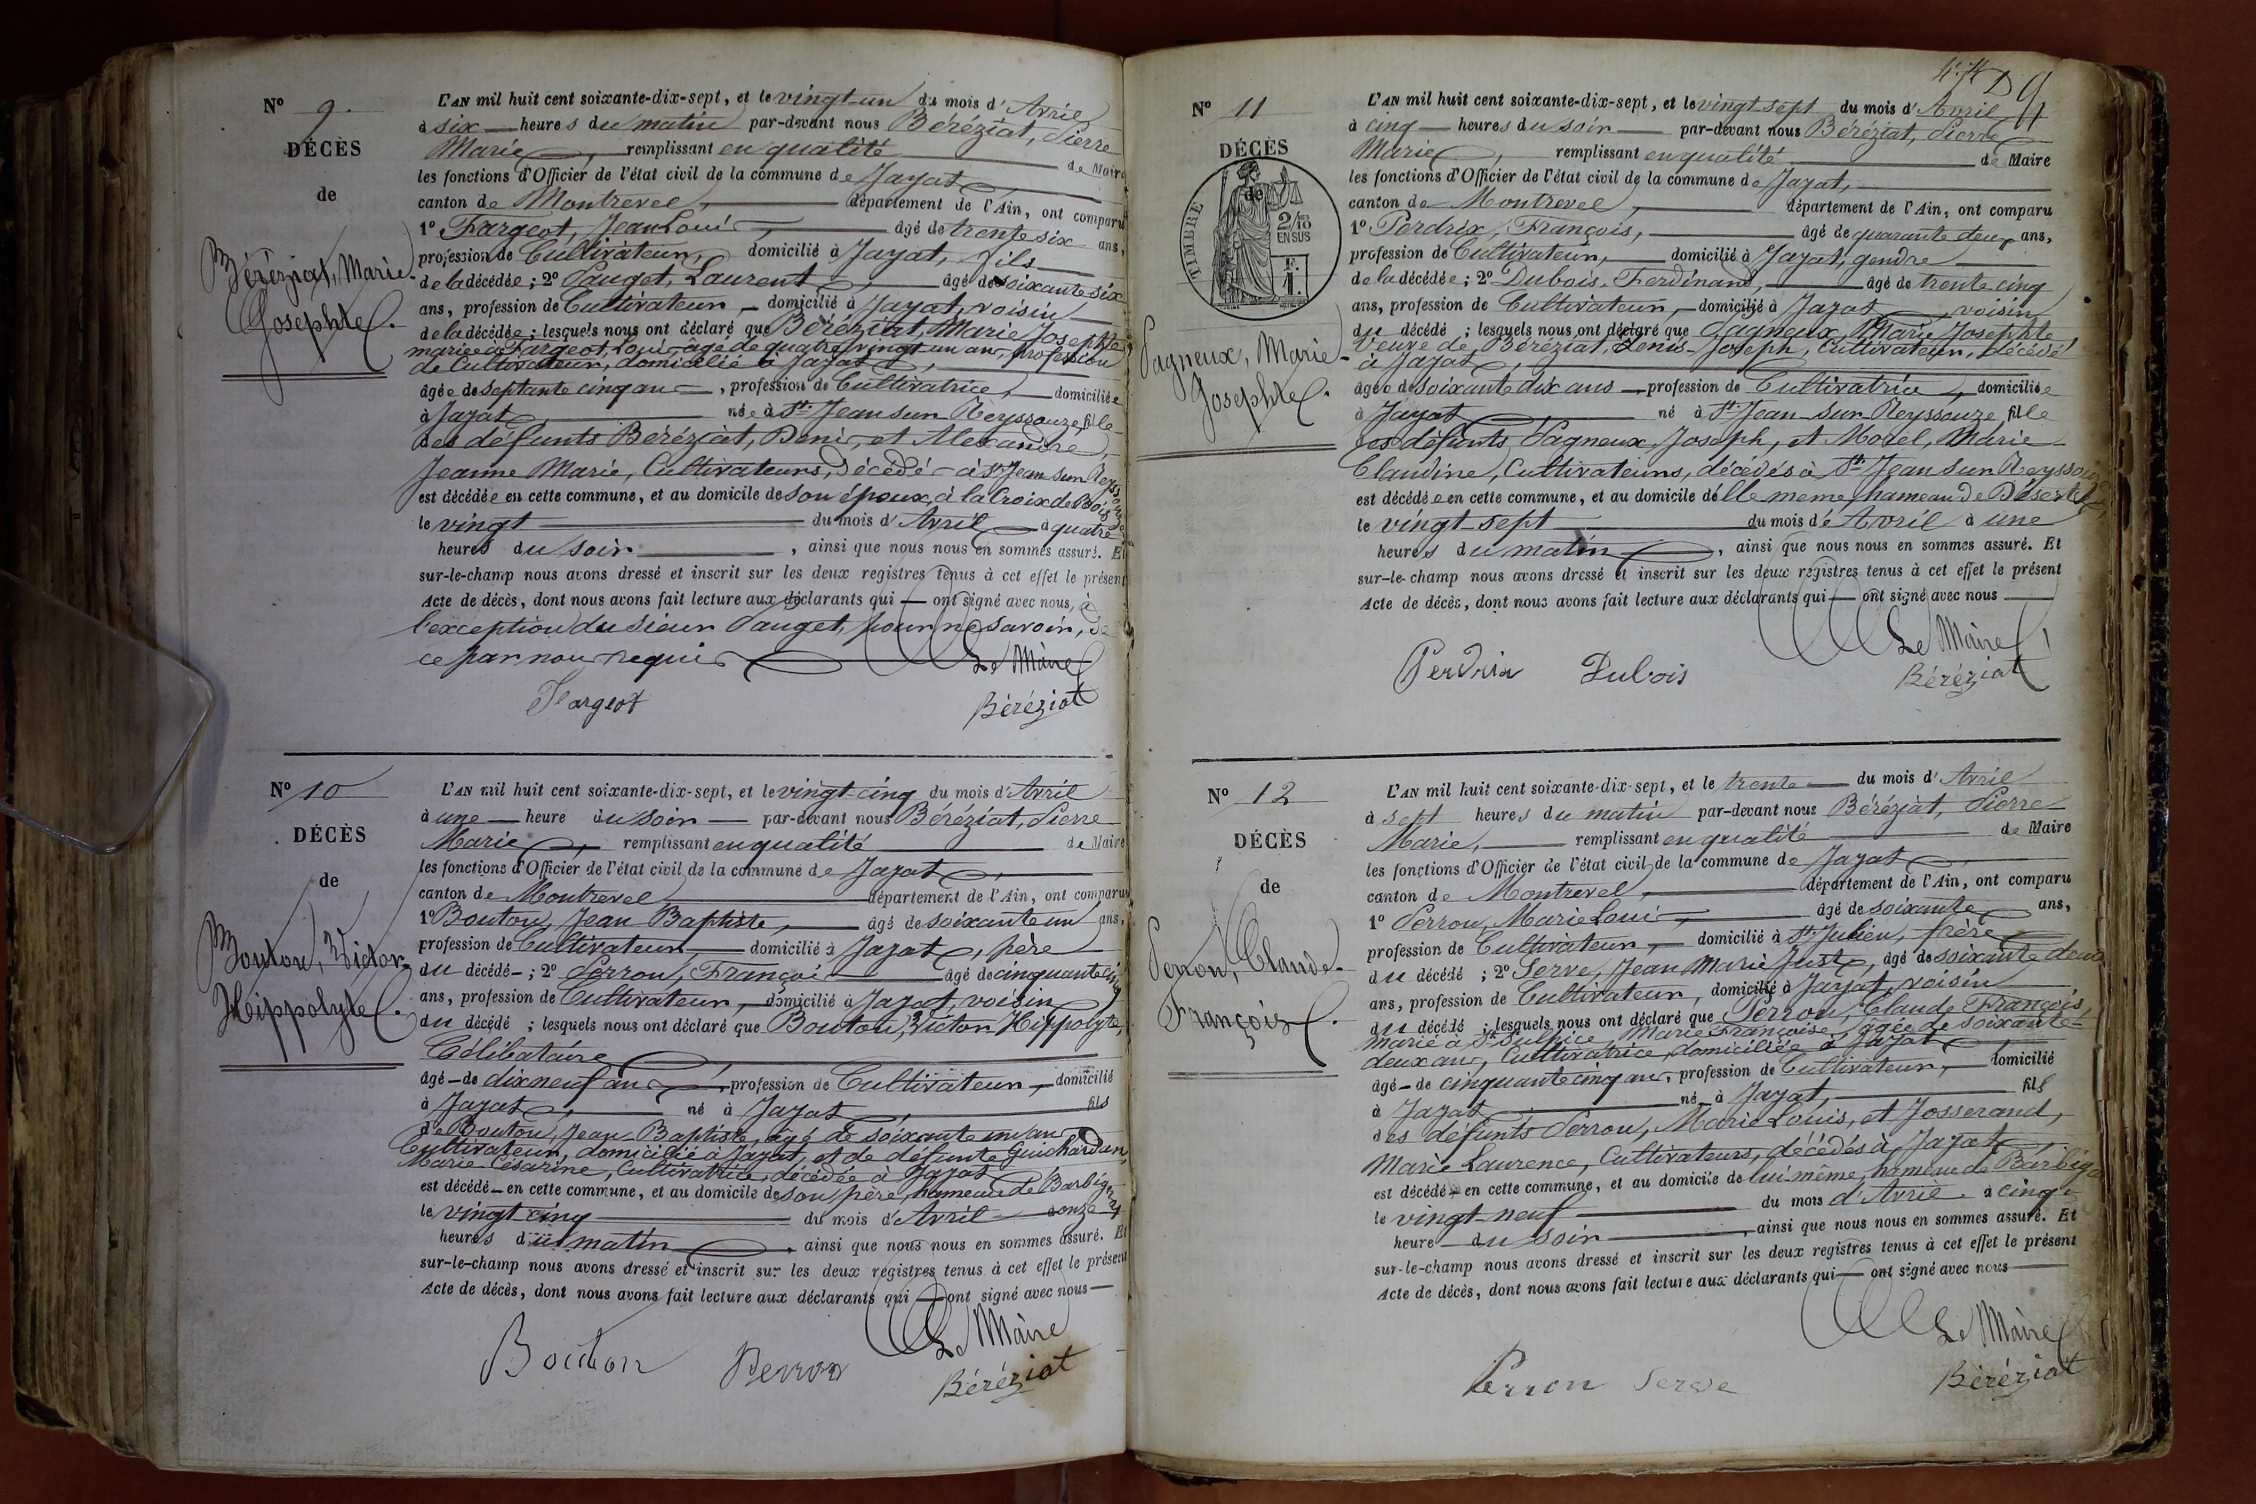 N° 9.
DÉCÈS
de
Béréziat, Marie
Josephte
L'AN mil huit cent soixante-dix-sept, et le vingt un du mois d'Avril
à six heures du matin par-devant nous Béréziat, Pierre
Marie, remplissant en qualité de Maire
les fonctions d'Officier de l'état civil de la commune de Jayat
canton de Montrevel, département de l'Ain, ont comparu
1° Fargeot, Jean Louis, âgé de trente six ans,
profession de Cultivateur, domicilié à Jayat, fils
de la décédée; 2° Pauget, Laurent, âgé de soixante six
ans, profession de Cultivateur, domicilié à Jayat, voisin
de la décédée; lesquels nous ont déclaré que Béréziat, Marie Josephte
mariée à Fargeot, Louis, âgé de quatre vingt un ans, profession
de Cultivateur, domicilié à Jayat,
âgée de septante cinq ans, profession de Cultivatrice, domiciliée
à Jayat née à St Jean sur Reyssouze, fille
des défunts Béréziat, Denis, et Alexandre,
Jeanne Marie, Cultivateurs, décédés à St Jean sur Reyssouze
est décédée en cette commune, et au domicile de son époux, à la Croix de Bois
le vingt du mois d'Avril à quatre
heures du soir, ainsi que nous nous en sommes assuré. Et
sur-le-champ nous avons dressé et inscrit sur les deux registres tenus à cet effet le présent
Acte de décès, dont nous avons fait lecture aux déclarants qui ont signé avec nous, à
l'exception du sieur Pauget, pour ne savoir, de
ce par nous requis
Le Maire
Fargeot Béréziat
N° 10
DÉCÈS
de
Bouton, Victor
Hippolyte
L'AN mil huit cent soixante-dix-sept, et le vingt-cinq du mois d'Avril
à une heure du soir par-devant nous Béréziat, Pierre
Marie, remplissant en qualité de Maire
les fonctions d'Officier de l'état civil de la commune de Jayat,
canton de Montrevel département de l'Ain, ont comparu
1° Bouton, Jean Baptiste, âgé de soixante un ans,
profession de Cultivateur, domicilié à Jayat, père
du décédé; 2° Perron, François âgé de cinquante cinq
ans, profession de Cultivateur, domicilié à Jayat, voisin
du décédé; lesquels nous ont déclaré que Bouton, Victor Hippolyte,
Célibataire
âgé de dix neuf ans, profession de Cultivateur, domicilié
à Jayat, né à Jayat, fils
de Bouton, Jean-Baptiste, âgé de soixante un ans
Cultivateur, domicilié à Jayat, et de défunte Guichardan,
Marie Césarine, Cultivatrice, décédée à Jayat
est décédé en cette commune, et au domicile de son père, hameau de Barbigny
le vingt cinq du mois d'Avril à onze
heures du matin, ainsi que nous nous en sommes assuré. Et
sur-le-champ nous avons dressé et inscrit sur les deux registres tenus à cet effet le présent
Acte de décès, dont nous avons fait lecture aux déclarants qui ont signé avec nous
Le Maire
Bouton Perron Béréziat
N° 11
DÉCÈS
de
TIMBRE
2/10 EN SUS
F. 1.
Pagneux, Marie
Josephte
L'AN mil huit cent soixante-dix-sept, et le vingt sept du mois d'Avril
à cinq heures du soir par-devant nous Béréziat, Pierre
Marie, remplissant en qualité de Maire
les fonctions d'Officier de l'état civil de la commune de Jayat,
canton de Montrevel, département de l'Ain, ont comparu
1° Perdrix, François, âgé de quarante deux ans,
profession de Cultivateur, domicilié à Jayat, gendre
de la décédée; 2° Dubois, Ferdinand, âgé de trente cinq
ans, profession de Cultivateur, domicilié à Jayat, voisin
du décédé; lesquels nous ont déclaré que Pagneux, Marie Josephte
Veuve de Béréziat, Denis-Joseph, Cultivateur, décédé
à Jayat,
âgée de soixante dix ans profession de Cultivatrice, domiciliée
à Jayat né à St Jean-sur-Reyssouze fille
des défunts Pagneux, Joseph, et Morel, Marie
Claudine, Cultivateurs, décédés à St Jean sur Reyssouze
est décédée en cette commune, et au domicile d'elle même, hameau de Déserte
le vingt-sept du mois d'Avril à une
heures du matin, ainsi que nous nous en sommes assuré. Et
sur-le-champ nous avons dressé et inscrit sur les deux registres tenus à cet effet le présent
Acte de décès, dont nous avons fait lecture aux déclarants qui ont signé avec nous
Le Maire
Perdrix Dubois Béréziat
N° 12
DÉCÈS
de
Perron, Claude
François
L'AN mil huit cent soixante-dix-sept, et le trente du mois d'Avril
à sept heures du matin par-devant nous Béréziat, Pierre
Marie, remplissant en qualité de Maire
les fonctions d'Officier de l'état civil de la commune de Jayat,
canton de Montrevel, département de l'Ain, ont comparu
1° Perron, Marie Louis, âgé de soixante ans,
profession de Cultivateur, domicilié à St Julien, frère
du décédé; 2° Serve, Jean Marie Just, âgé de soixante deux
ans, profession de Cultivateur, domicilié à Jayat, voisin
du décédé; lesquels nous ont déclaré que Perron, Claude François,
marié à St Sulpice, Marie Françoise, âgée de soixante-
deux ans, Cultivatrice, domiciliée à Jayat
âgé de cinquante cinq ans, profession de Cultivateur, domicilié
à Jayat né à Jayat, fils
des défunts Perron, Marie Louis, et Josserand,
Marie Laurence, Cultivateurs, décédés à Jayat
est décédé en cette commune, et au domicile de lui-même, hameau de
le vingt-neuf du mois d'Avril à cinq
heure du soir, ainsi que nous nous en sommes assuré. Et
sur-le-champ nous avons dressé et inscrit sur les deux registres tenus à cet effet le présent
Acte de décès, dont nous avons fait lecture aux déclarants qui ont signé avec nous
Le Maire
Perron Serve Béréziat